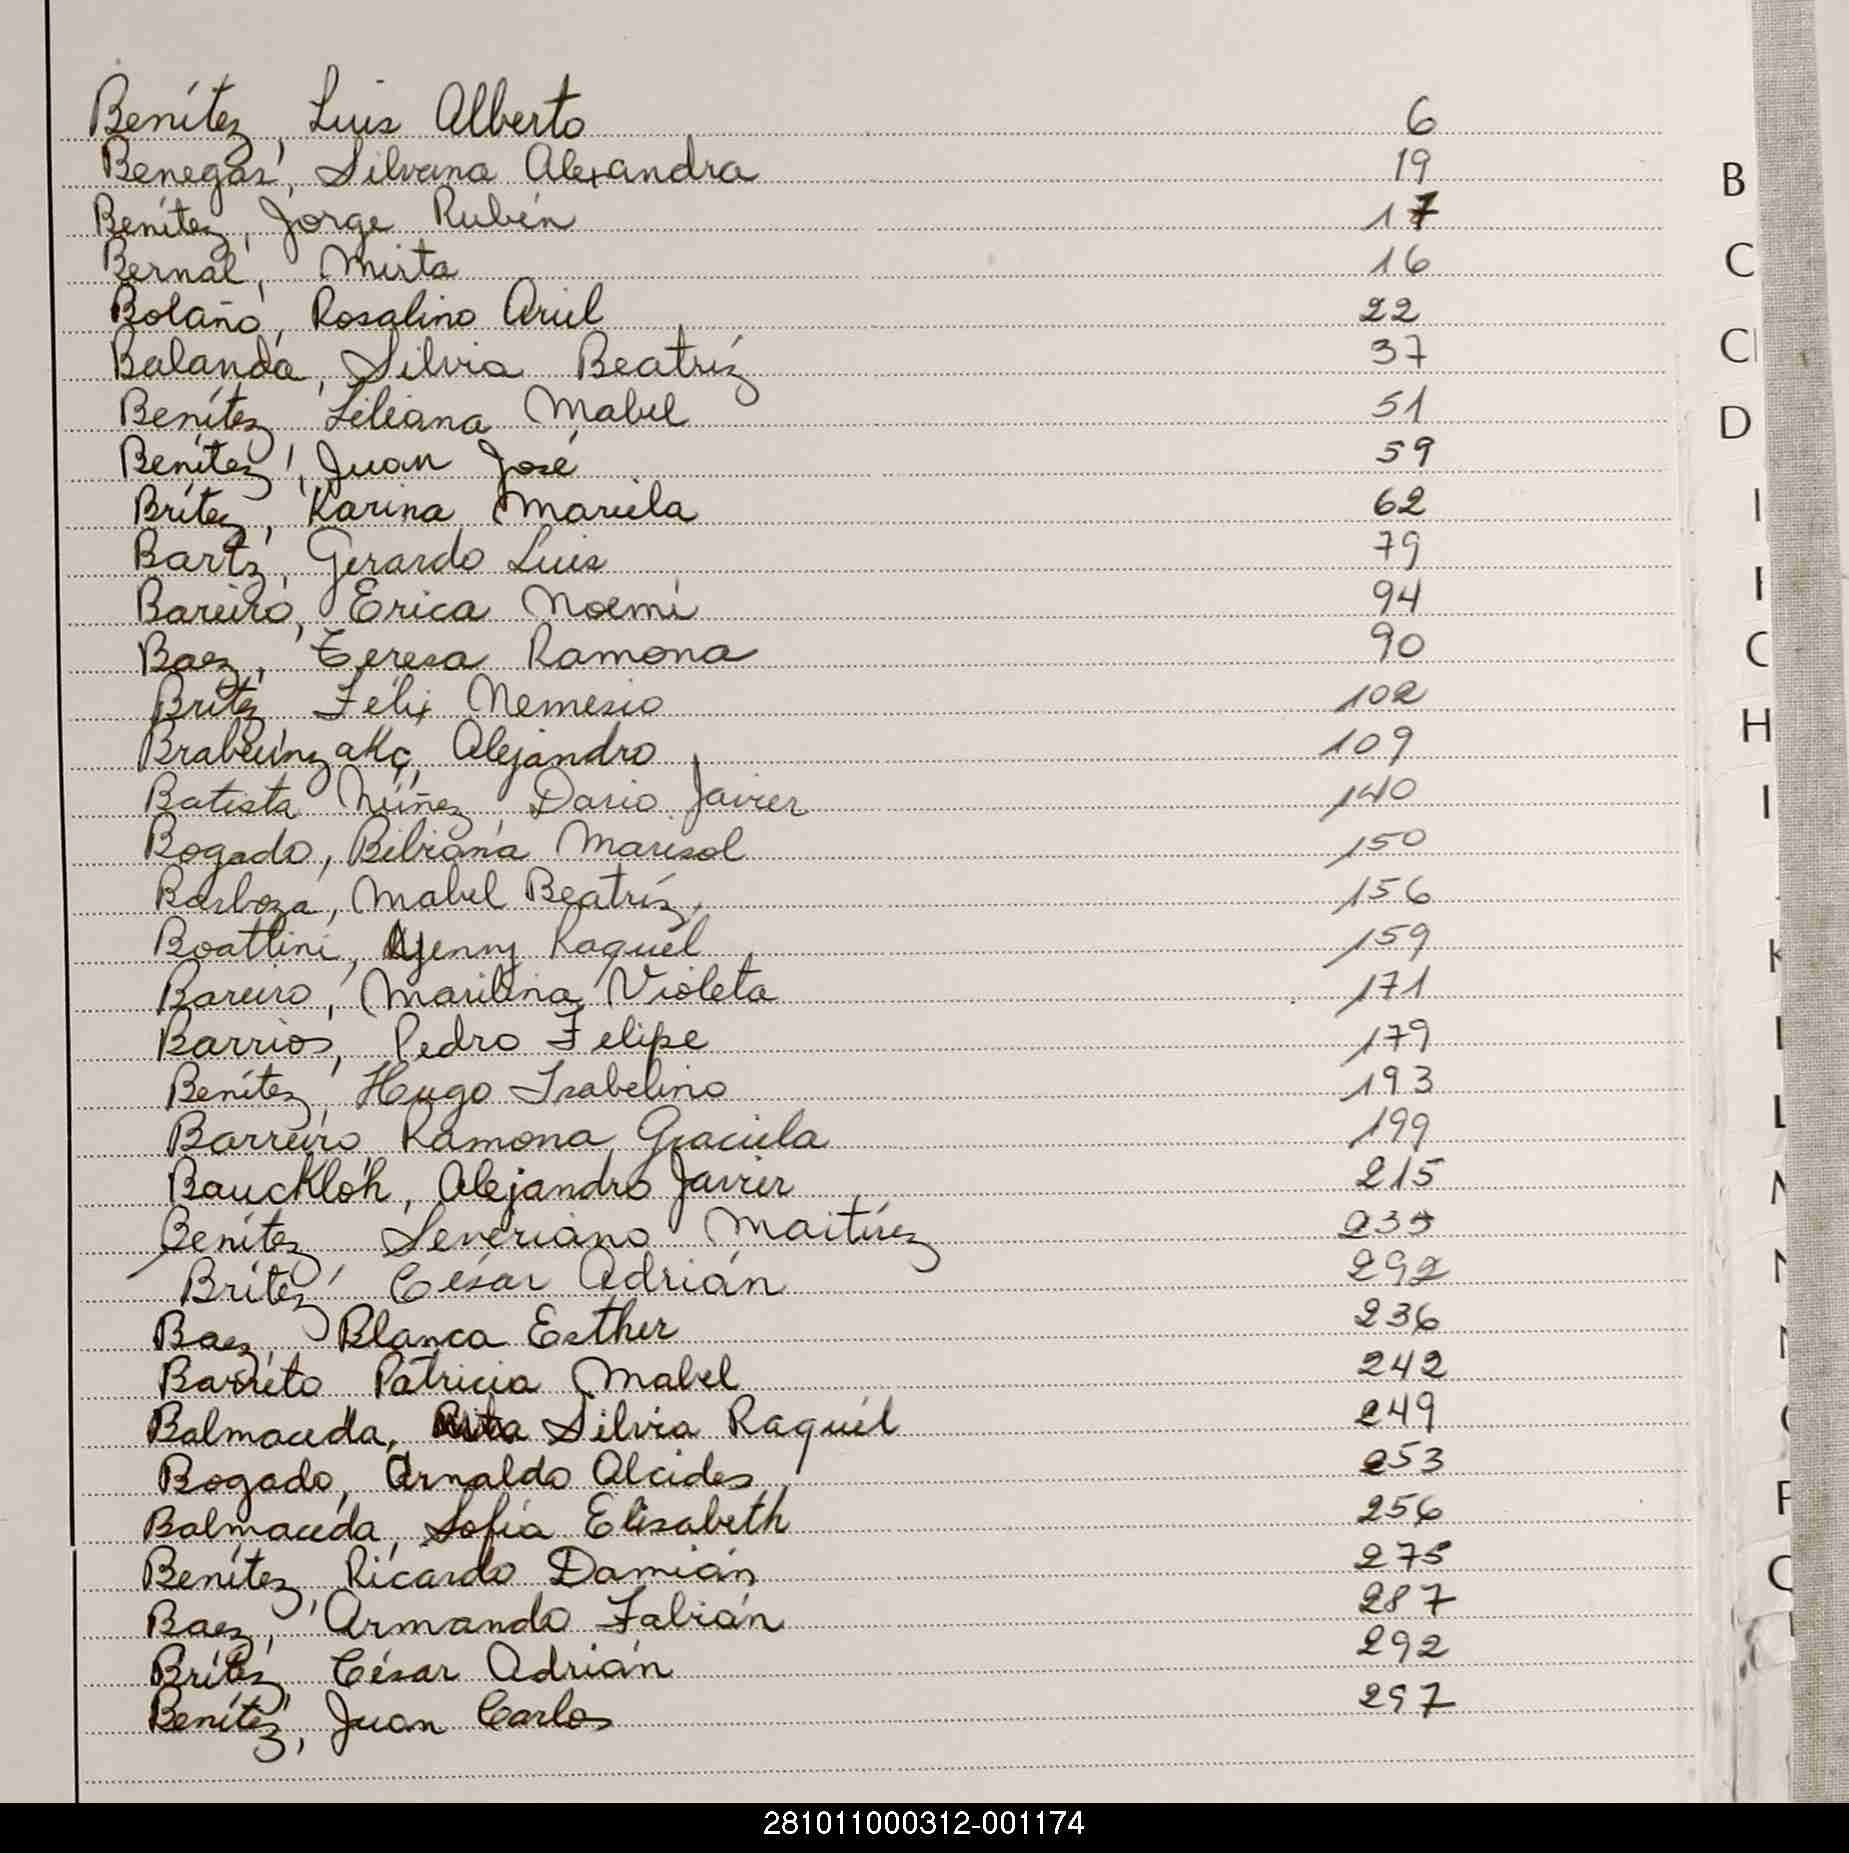 Benítez, Luis Alberto 6
Benegas, Silvana Alexandra 19
Benítez, Jorge Rubén 17
Bernal, Mirta 16
Bolaño, Rosalino Ariel 22
Balanda, Silvia Beatríz 37
Benítez, Liliana Mabel 51
Benítez, Juan José 59
Brítez, Karina Mariela 62
Bartz, Gerardo Luis 79
Bareiro, Erica Noemi 94
Baez, Teresa Ramona 90
Brítez Félix Nemesio 102
Alejandro 109
Batista Núñez, Dario Javier 140
Bogado, Bibiana Marisol 150
Barboza, Mabel Beatríz, 156
Boattini, Yenny Raquel 159
Bareiro, Marilina Violeta 171
Barrios, Pedro Felipe 179
Benítez, Hugo Isabelino 193
Barreiro, Ramona Graciela 199
Baucklöh, Alejandro Javier 215
Benítez, Severiano 235
Brítez, César Adrián 292
Baez, Blanca Esther 236
Barreto Patricia Mabel 242
Balmaceda, Silvia Raquél 249
Bogado, Arnaldo Alcides 253
Balmaceda, Sofía Elisabeth 256
Benítez, Ricardo Damián 275
Baez, Armando Fabián 287
Brítez, César Adrián 292
Benítez, Juan Carlos 297
B
C
D
H
I
281011000312-001174